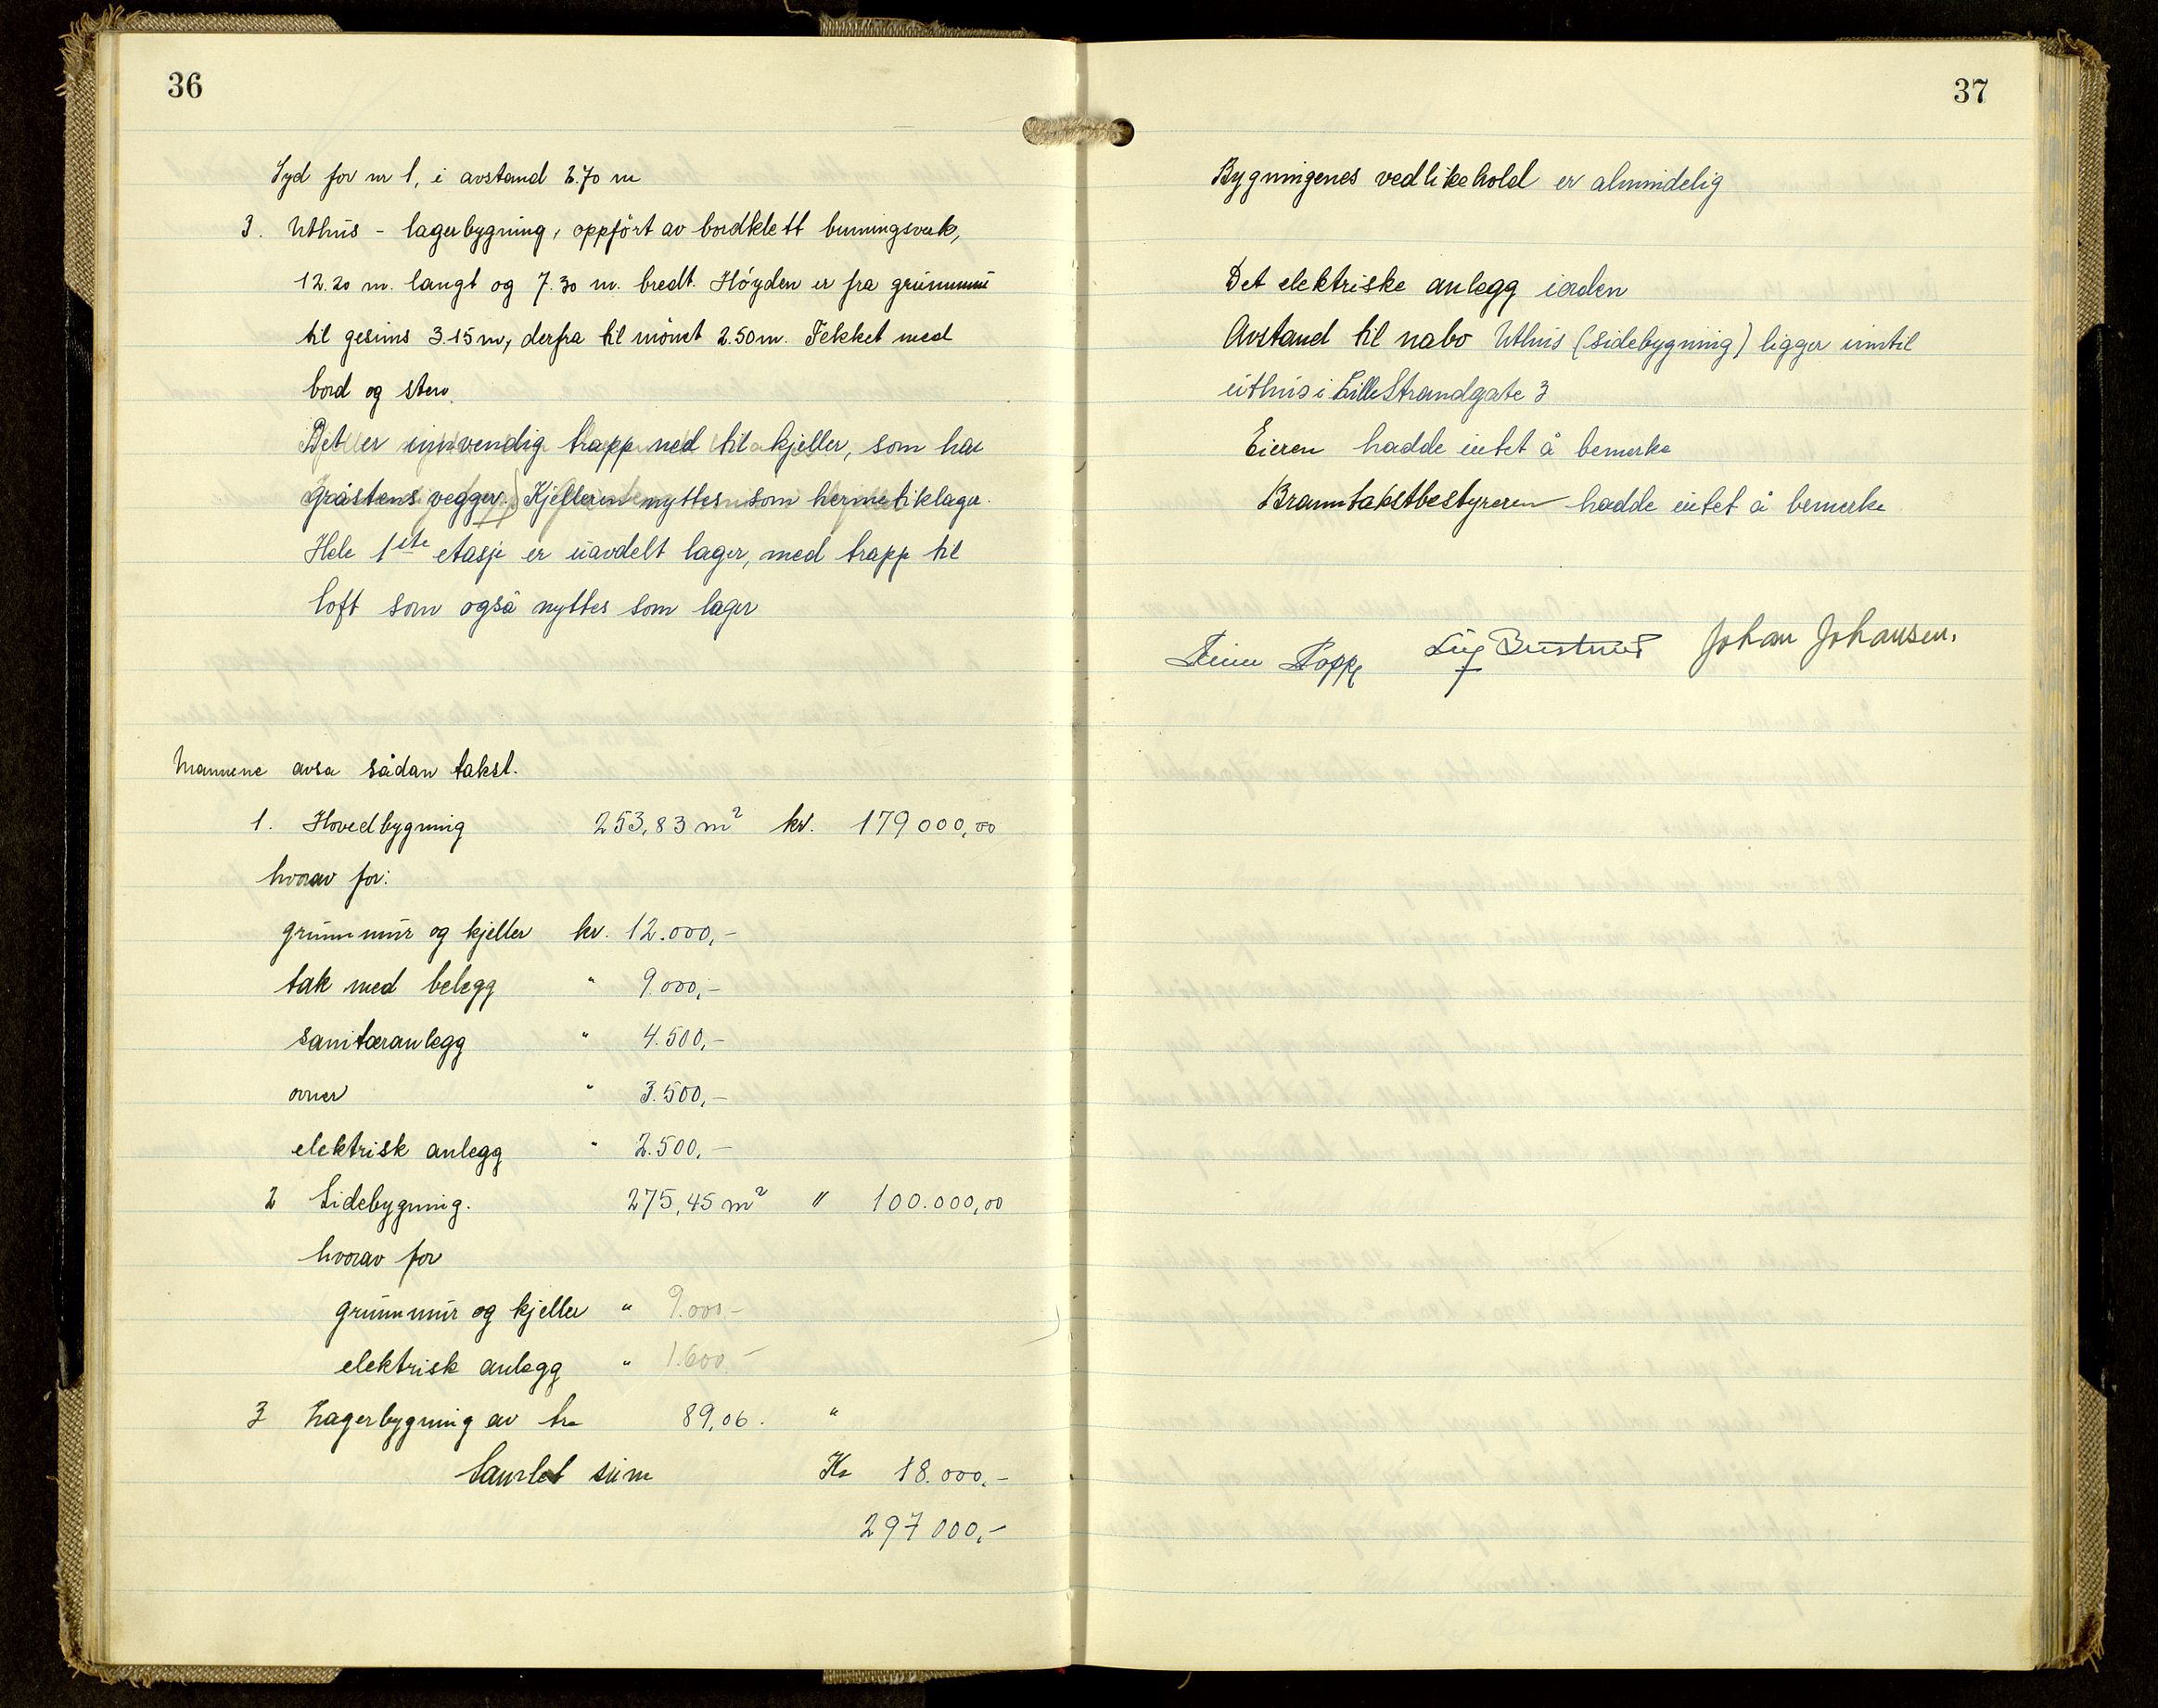 36
Syd for nr 1, i avstand 2.70 m
3. Uthus - lagerbygning, oppført av bordklett bunningsverk,
12.20 m. langt og 7.30 m. bredt. Høyden er fra grunnmur
til gesims 3.15 m, derfra til mönet 2.50 m. Tekket med
bord og sten.
Det er innvendig trapp ned til kjeller, som har
gråstens vegger. Kjelleren nyttes som hermetiklager.
Hele 1ste etasje er uavdelt lager, med trapp til
loft som også nyttes som lager
Mannene avsa sådan takst.
1. Hovedbygning 253,83 m² kr. 179 000,00
hvorav for:
grunnmur og kjeller kr. 12.000,-
tak med belegg " 9.000,-
sanitæranlegg " 4.500,-
ovner " 3.500,-
elektrisk anlegg " 2.500,-
2 Sidebygning. 275,45 m² " 100.000,00
hvorav for
grunnmur og kjeller " 9.000-
elektrisk anlegg " 1.600-
3 Lagerbygning av tre 89,06. "
Samlet sum Kr 18.000,-
297 000,-
37
Bygningenes vedlikehold er almindelig
Det elektriske anlegg iorden
Avstand til nabo Uthus (sidebygning) ligger inntil
uthus i Lille Strandgate 3
Eieren hadde intet å bemerke
Branntakstbestyreren hadde intet å bemerke
Johan Johansen.